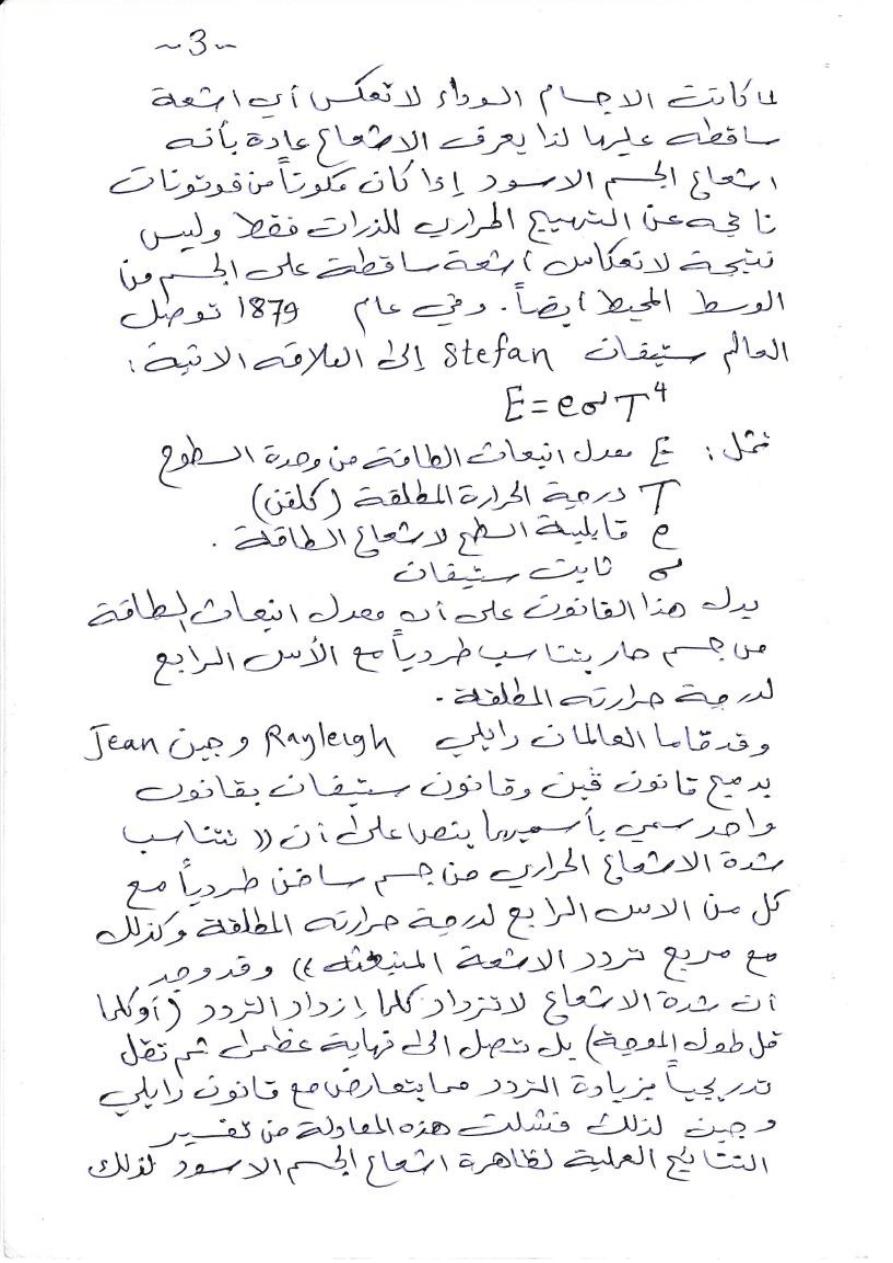 ~3~
لما كانت الاجسام السوداء لا تعكس أي اشعة
ساقطه عليها لذا يعرف الاشعاع عادة بأنه
اشعاع الجسم الاسود إذا كان مكوناً من فوتونات
ناتجه عن التهييج الحراري للذرات فقط وليس
نتيجة لانعكاس أشعة ساقطة على الجسم من
الوسط المحيط أيضاً. وفي عام 1879 توصل
العالم ستيفان Stefan إلى العلاقه الاتية:
E = eσT⁴
تمثل: E معدل انبعاث الطاقة من وحدة السطوح
T درجة الحرارة المطلقة (كلفن)
e قابلية السطح لاشعاع الطاقة.
σ ثابت ستيفان
يدل هذا القانون على أن معدل انبعاث الطاقة
من جسم حار يتناسب طردياً مع الأس الرابع
لدرجة حرارته المطلقة.
وقد قاما العالمان رايلي Rayleigh و جين Jean
بدمج قانون ڤين وقانون ستيفان بقانون
واحد سمي بأسميهما ينص على أن (( تتناسب
شدة الاشعاع الحراري من جسم ساخن طردياً مع
كل من الاس الرابع لدرجة حرارته المطلقة وكذلك
مع مربع تردد الاشعة المنبعثه )) وقد وجد
أن شدة الاشعاع لا تزداد كلما إزداد التردد (أو كلما
قل طول الموجة) بل تصل الى نهاية عظمى ثم تقل
تدريجياً بزيادة التردد مما يتعارض مع قانون رايلي
و جين لذلك فشلت هذه المعادلة من تفسير
النتائج العملية لظاهرة اشعاع الجسم الاسود لذلك